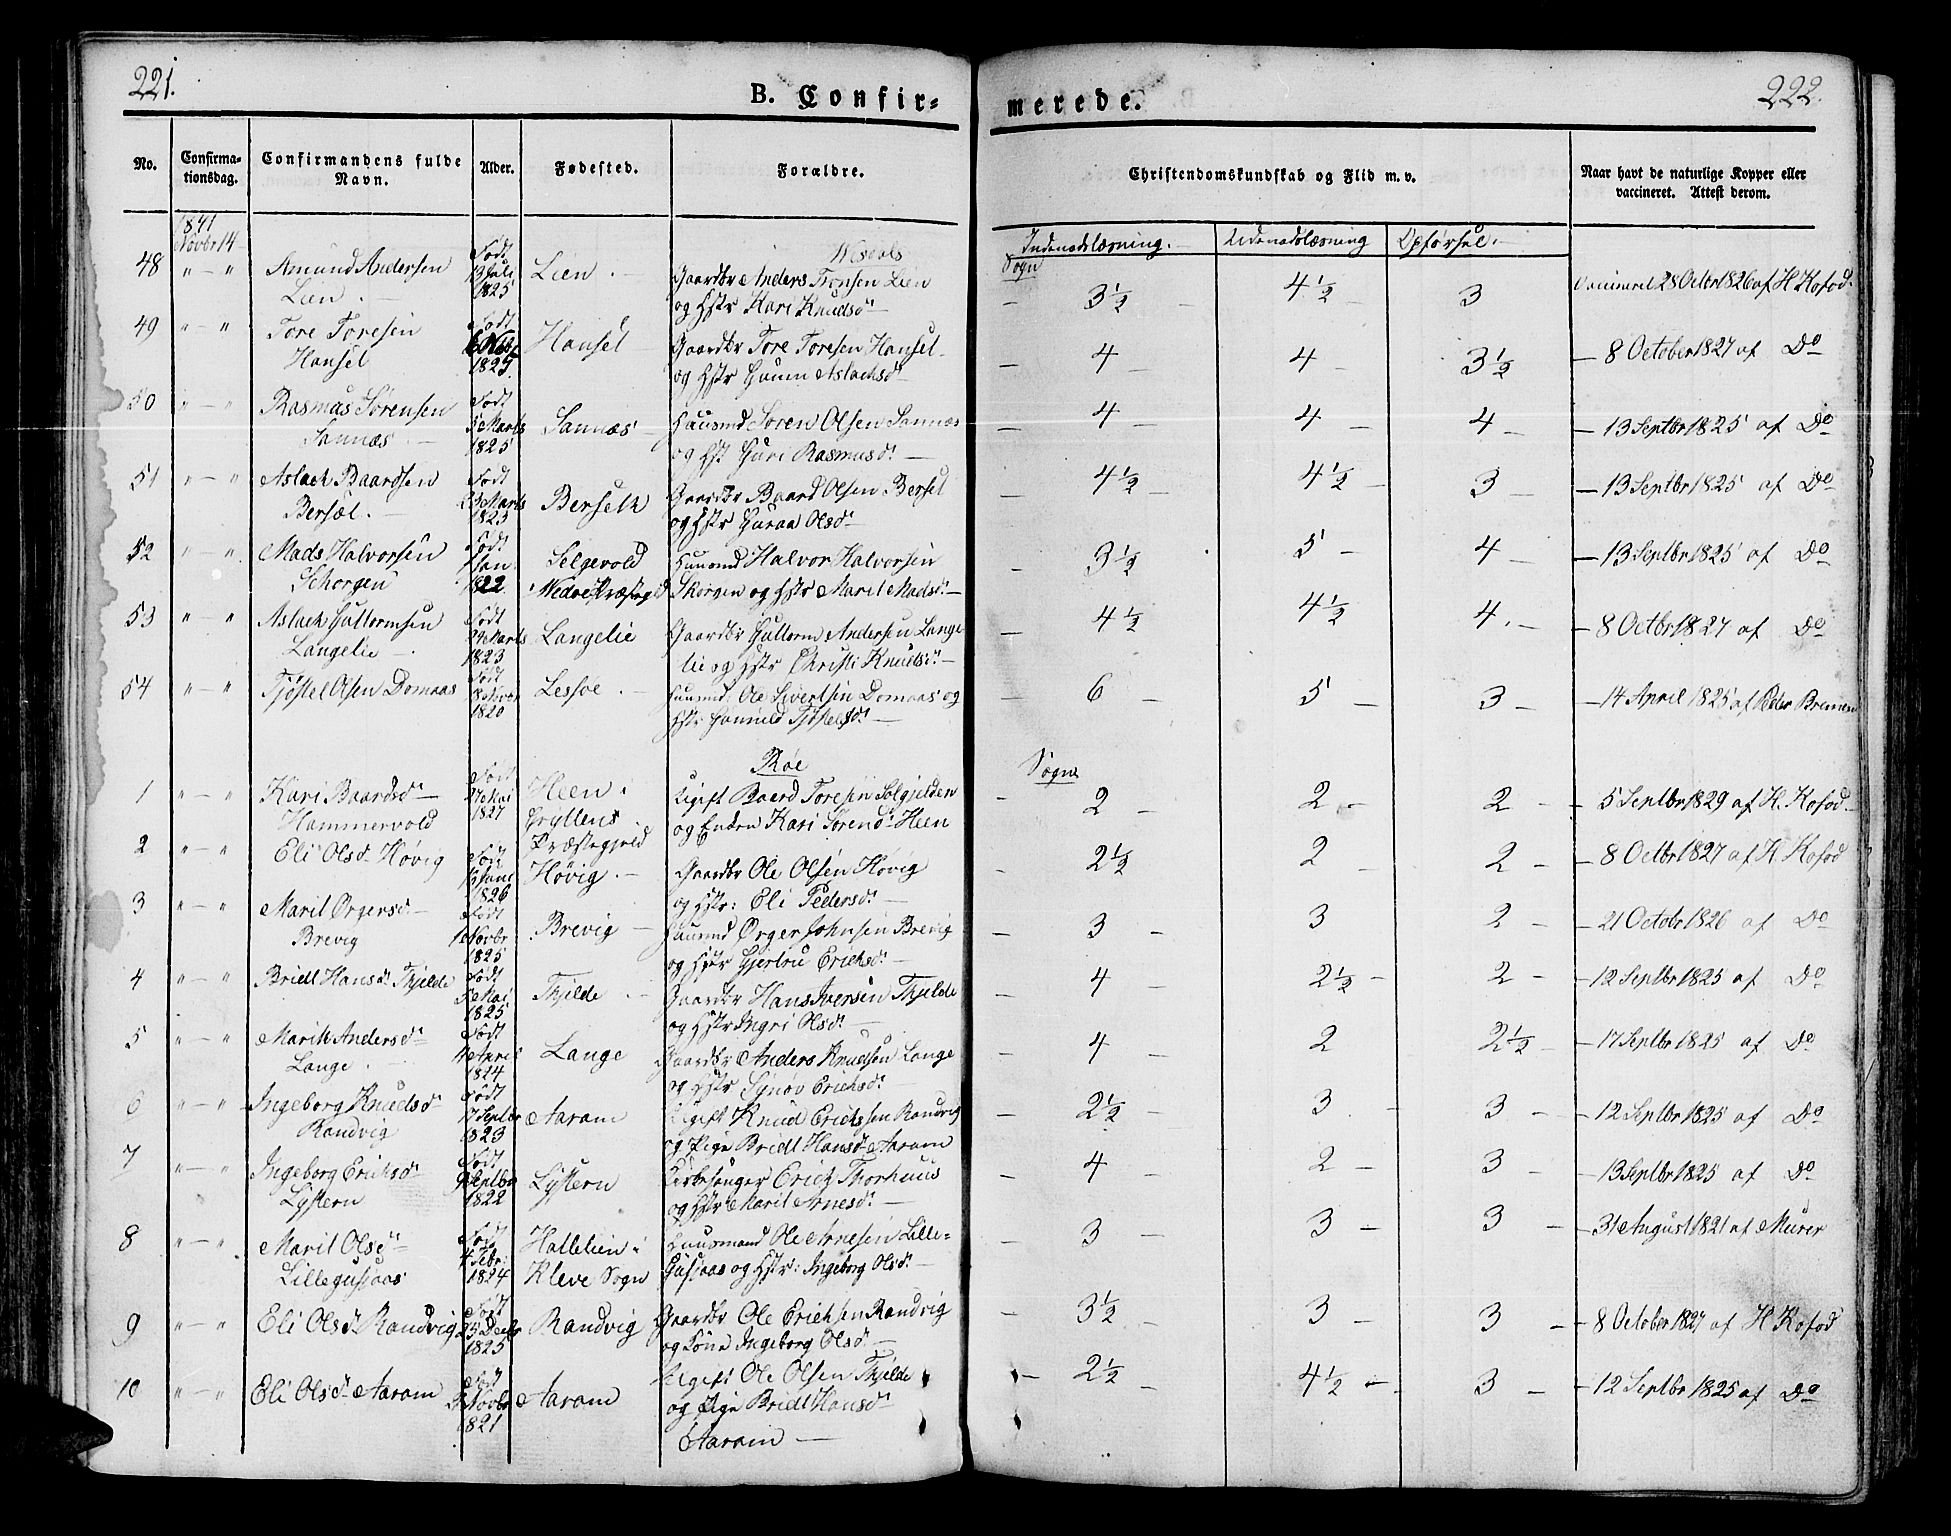 221.
B. Confir-
merede.
222.
No.
Confirma-
tionsdag.
Confirmandens fulde
Navn.
Alder.
Fødested.
Forældre.
Christendomskundskab og Flid m. v.
Naar havt de naturlige Kopper eller
vaccineret. Attest derom.
Indenadslæsning.
Udenadslæsning
Opførsel.
1841
Novbr 14
Sogn
48 " — " Amund Andersen
Lien
Født
13 Juli
1825
Lien
Gaardbr Anders Tronsen Lien
og Hstr Kari Knudsd.
3½ 4½ 3
Vaccineret 28 Octbr 1826 af H. Kofod
49 " — " Tore Toresen
Hansel
Født
1825
Hansel
Gaardbr Tore Toresen Hansel
og Hstr Aslachsd.
4 4 3½
8 October 1827 af Do
50 " — " Rasmus Sørensen
Sannæs
Født
5 Marts
1825
Sannæs
Huusmd Søren Olsen Sannæs
og Hst Guri Rasmusd.
4 4 4
13 Septbr 1825 af Do
51 " — " Aslach Baardsen
Bersæt
Født
23 Marts
1823
Berseth
Gaardbr Baard Olsen Berset
og Hstr Guraa Olsd.
4½ 4½ 3
13 Septbr 1825 af Do
52 " — " Mads Halvorsen
Schorgen
Født
1 Jan
1822
Selgevold
Nedre Præstegjd
Huusmd Halvor Halvorsen
Skorgen og Hstr Marit Madsd.
3½ 5 4
13 Septbr 1825 af Do
53 " — " Aslach Guttormsen
Langelie
Født
24 Marts
1823
Langelie
Gaardbr Guttorm Andersen Lange
lie og Hstr Christi Knudsd.
4½ 4½ 4
8 Octbr 1827 af Do
54 " — " Tjøstel Olsen Domaas
Født
8 Novbr
1820
Lessøe
Huusmd: Ole Sivertsen Domaas og
Hstr Gunild Tjøstelsd.
6 5 3
14 April 1825 af Peder Bremen
Røe
Sogn
1 " — " Kari Baardsd.
Hammervold
Født
27 Mai
1827
Heen i
Gryttens
Præstegjeld
Ugift Baard Toresen Solgjelden
og Enken Kari Sørensd. Heen
2 2 2
5 Septbr 1829 af H. Kofod
2 " — " Eli Olsd. Høvig
Født
13 Juni
1826
Høvig
Gaardbr Ole Olsen Høvig
og Hstr: Eli Pedersd.
2½ 2 2
8 Octbr 1827 af H. Kofod
3 " — " Marit Ørgersd.
Brevig
Født
1 Novbr
1825
Brevig
Huusmd Ørger Johnsen Brevig
og Hstr Gjertru Erichsd.
3 3 2
21 Octobr 1826 af Do
4 " — " Bridt Hansd. Thjelde
Født
5 Mai
1825
Thjelde
Gaardbr Hans Iversen Thjelde
og Hstr Ingri Olsd.
4 2½ 2
12 Septbr 1825 af Do
5 " — " Marith Andersd.
Lange
Født
4 April
1824
Lange
Gaardbr Anders Knudsen Lange
og Hstr Synøv Erichsd.
4 2 2½
17 Septbr 1825 af Do
6 " — " Ingeborg Knudsd.
Randvig
Født
17 Septbr
1823
Aaram
Ugift Knud Erichssen Randvig
og Pige Bridt Hansd. Aaram
2½ 3 3
12 Septbr 1825 af Do
7 " — " Ingeborg Erichsd.
Lystern
Født
9 Septbr
1822
Lystern
Kirkesanger Erich Thorhuus
og Hstr Marit Arnesd.
4 2 3
13 Septbr 1825 af Do
8 " — " Marit Olsd.
Lillegusiaas
Født
4 Febr:
1824
Hattelien i
Kleve Sogn
Huusmand Ole Arnesen Lille-
Gusiaas og Hstr: Ingeborg Olsd.
3 3 3
31 August 1821 af Murer
9 " — " Eli Olsd. Randvig
Født
25 Decbr
1825
Randvig
Gaardbr Ole Erichsen Randvig
og Kone Ingeborg Olsd.
3½ 3 3
8 October 1827 af H Kofod
10 " — " Eli Olsd. Aaram
Født
Novbr
1821
Aaram
Ugift Ole Olsen Thjelde
og Pige Bridt Hansd.
Aaram
2½ 4½ 3
12 Septbr 1825 af Do